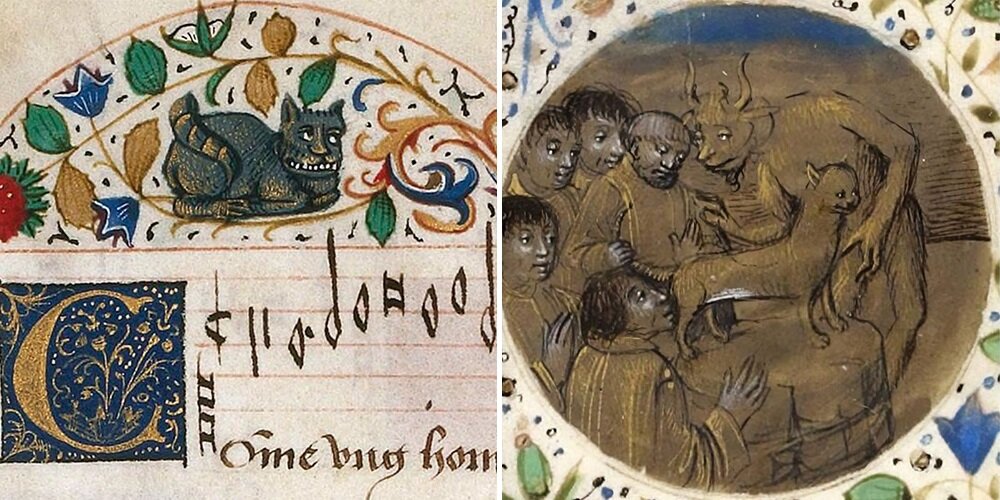 COm̃e vng hom